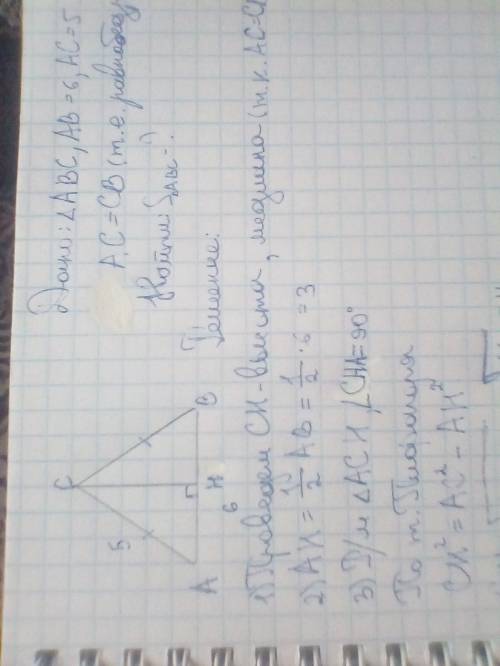 Дано: △ABC, AB=6, AC=5
AC=CB (т.е. равнобед
Найти: S ABC-?
Решение:
C
5
A
H
B
6
1) Проведем CH-высота, медиана (т.к. AC=C
2) AH = 1/2 AB = 1/2 · 6 = 3
3) П/м △ACH ∠CHA=90°
По т. Пифагора
CH² = AC² - AH²